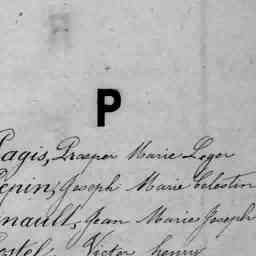 P
Pagis, Prosper Marie Leger
Pépin, Joseph Marie Célestin
Jean Marie Joseph
Victor henry